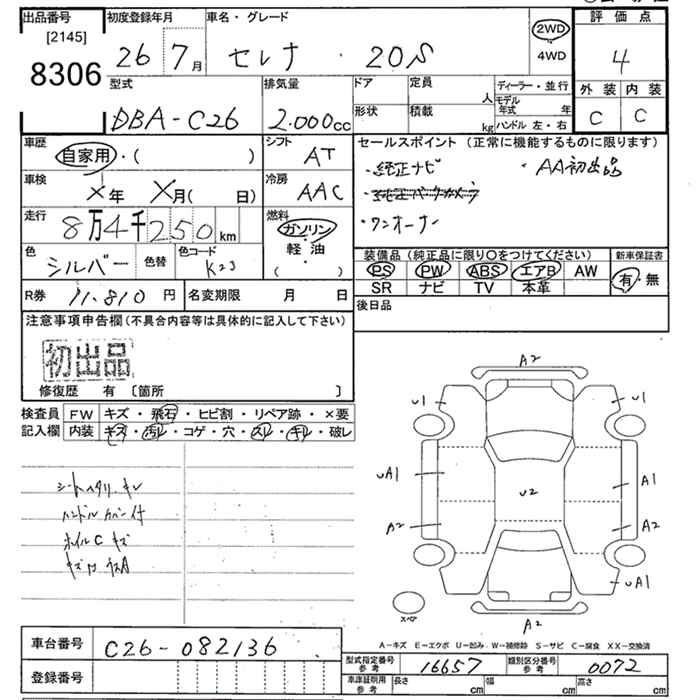 出品番号 初度登録年月 車名・グレード 評価点
[2145]
8306 26 7月 セレナ ・ 20S 2WD 4WD 4
型式 排気量 ドア 定員 人 ディーラー・並行 外装 内装
DBA-C26 2.000cc 形状 積載 kg モデル年式 年 ハンドル 左・右 C C
車歴 シフト セールスポイント (正常に機能するものに限ります)
自家用・( ) AT ・純正ナビ ・AA初出品
車検 冷房
×年 ×月( 日) AAC ・純正バックカメラ
走行 燃料
8万4千250km ガソリン ・ワンオーナー
色 色替 色コード 軽・油 装備品 (純正品に限り○をつけてください) 新車保証書
シルバー K23 ( ) PS PW ABS エアB AW 有・無
R券 11.810円 名変期限 月 日 SR ナビ TV 本革
注意事項申告欄(不具合内容等は具体的に記入して下さい) 後日品
初出品
修復歴 有 〔箇所 〕
検査員 FW キズ・飛石・ヒビ割・リペア跡・×要
記入欄 内装 キズ・汚レ・コゲ・穴・スレ・キレ・破レ
A2
U1 U1
UA1 A1
U2
A2 A2
UA1
シートヘタリ.キレ
ハンドルカバー付
ホイルC キズ
スペア
A2
A-キズ E-エクボ U-凹み W-補修跡 S-サビ C-腐食 XX-交換済
車台番号 C26-082136
型式指定番号 参考 16657 類別区分番号 参考 0072
登録番号 車庫証明用 参考 長さ cm 幅 cm 高さ cm